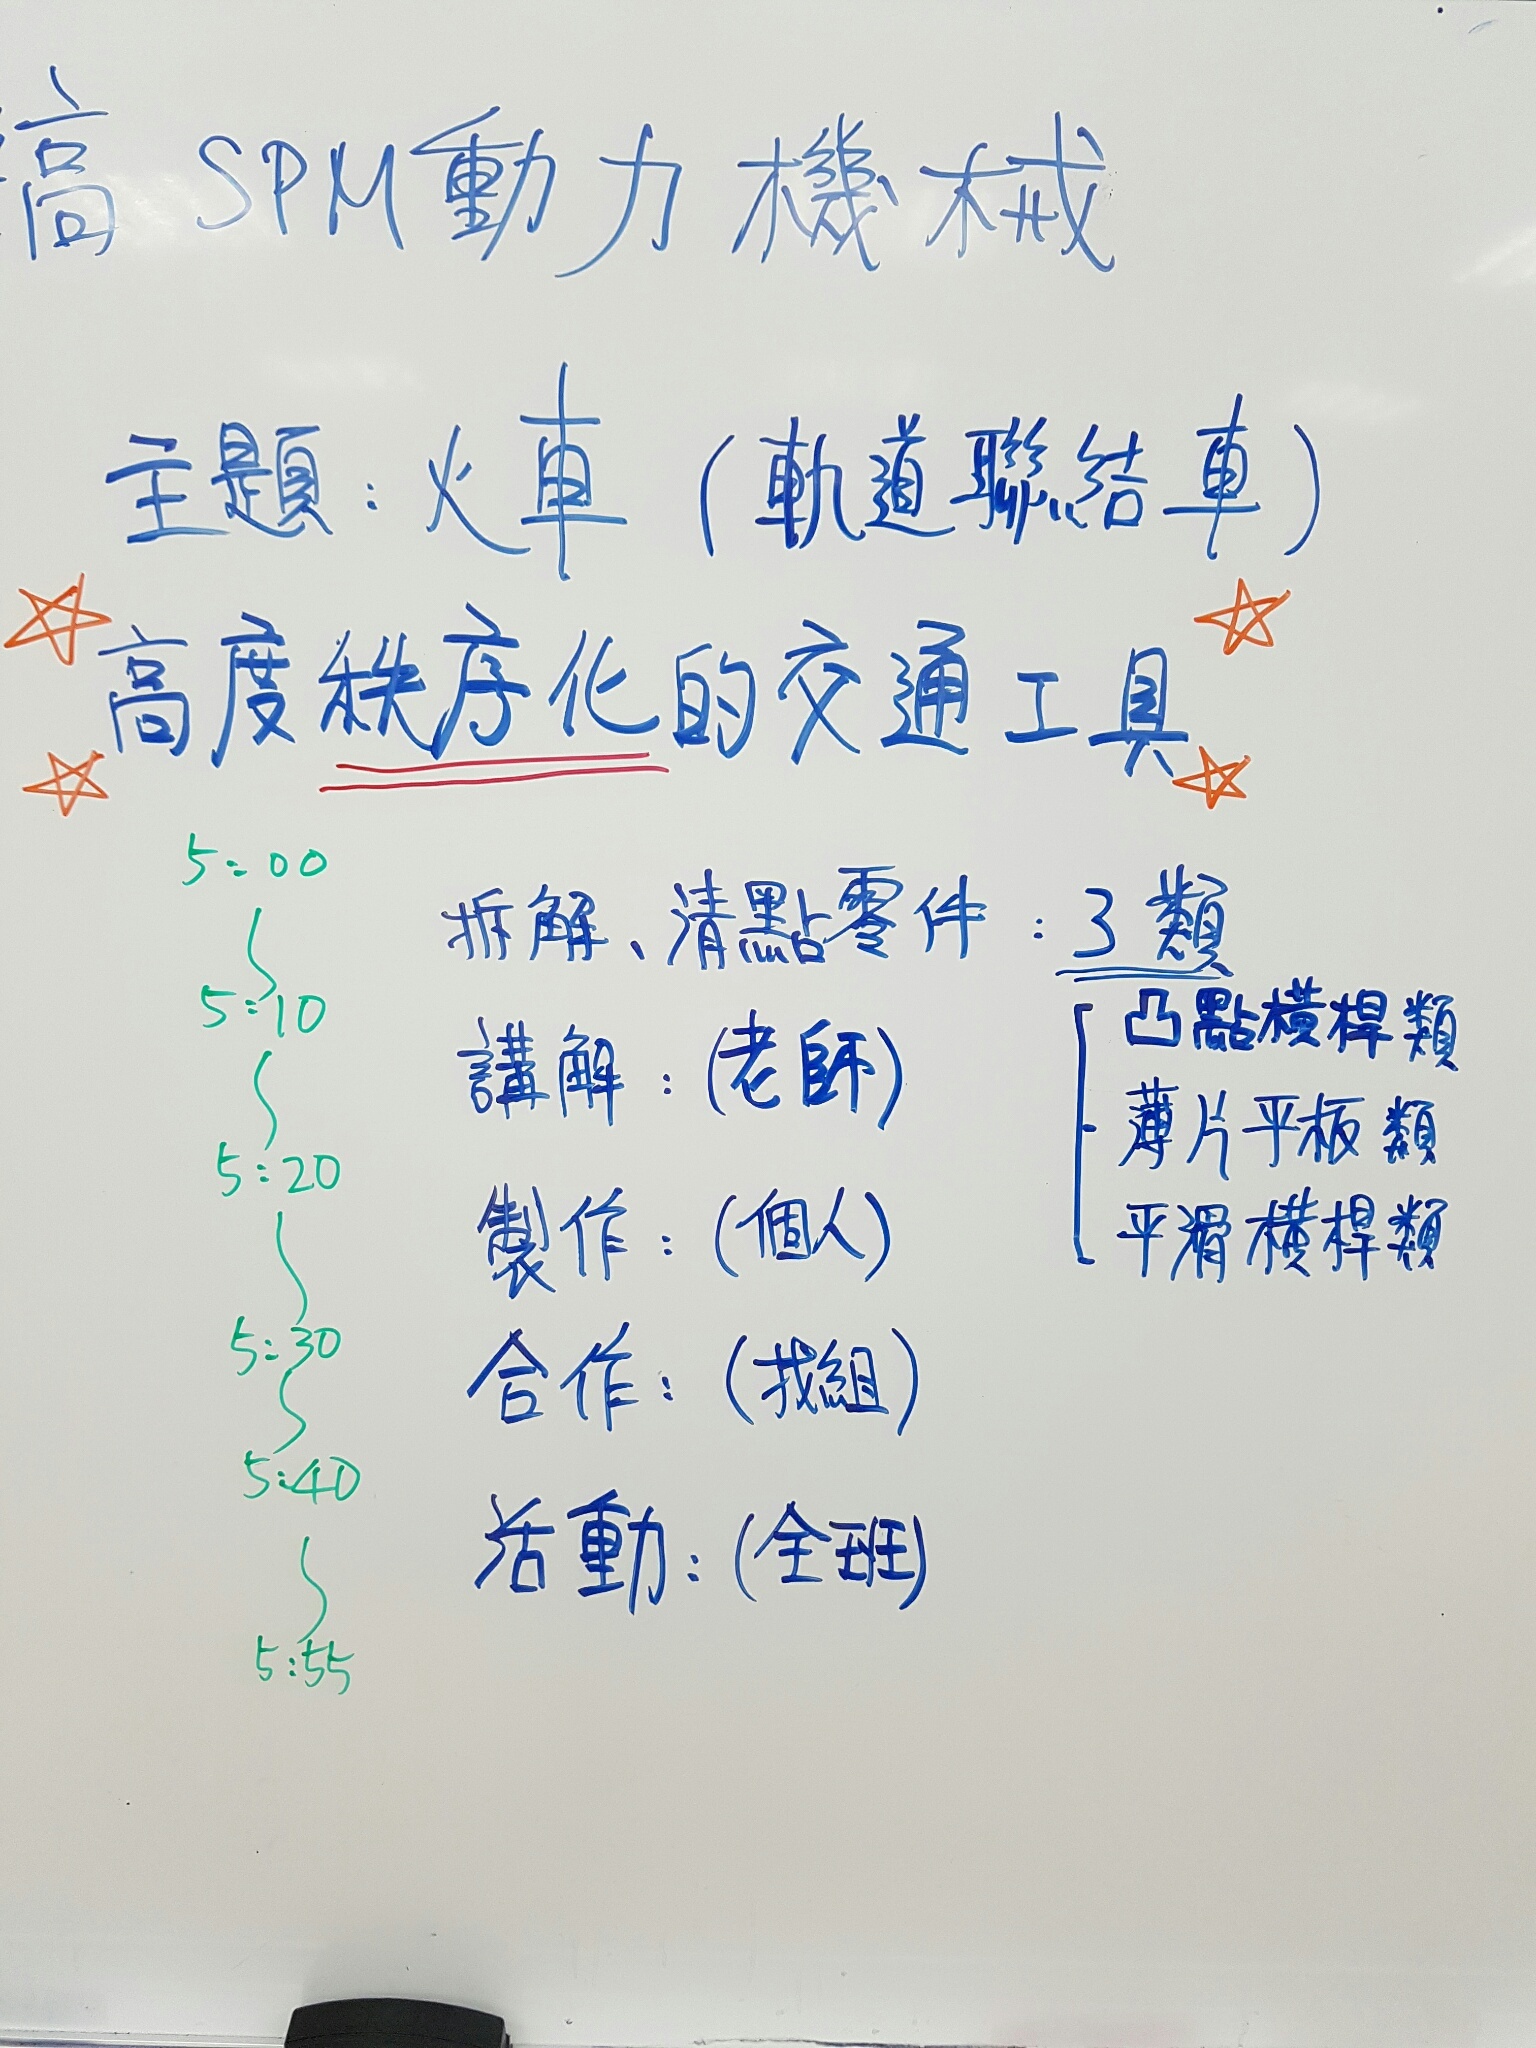 高 SPM動力機械
主題：火車（軌道聯結車）
高度秩序化的交通工具
5:00
拆解、清點零件：3類
凸點橫桿類
5:10
講解：(老師)
薄片平板類
5:20
製作：(個人)
平滑橫桿類
5:30
合作：(找組)
5:40
活動：(全班)
5:55